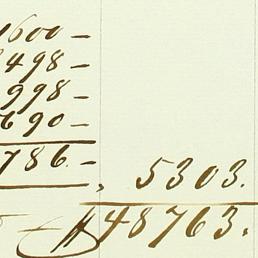 1600 -
498 -
998 -
690 -
786. - , 5303.
48763.